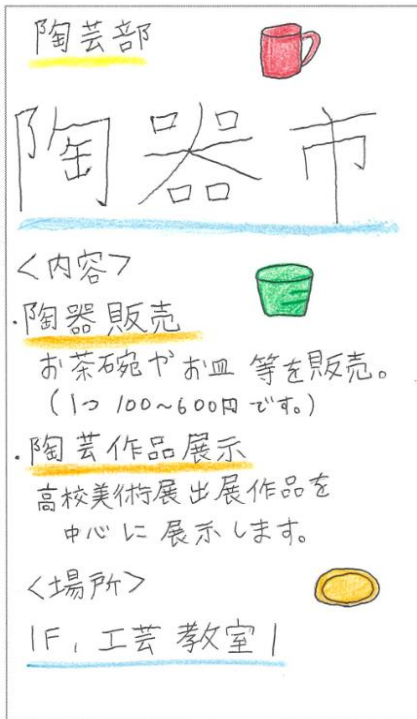 陶芸部
陶器市
<内容>
・陶器販売
お茶碗やお皿等を販売。
(1つ 100~600円です。)
・陶芸作品展示
高校美術展出展作品を
中心に展示します。
<場所>
1F, 工芸教室1